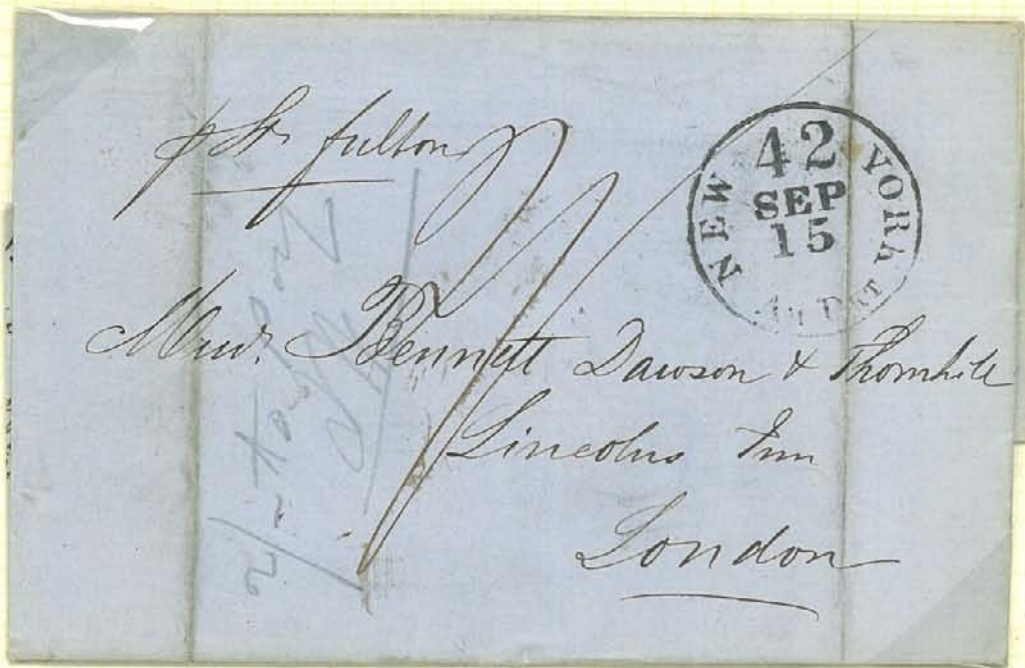 p Str fulton
NEW YORK
42
SEP
15
Messrs. Bennett Dawson & Thornhill
Lincolns Inn
London